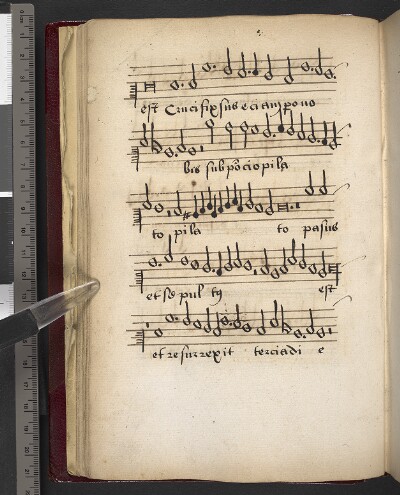 est Crucifixus eciam pro no
bis sub pōcio pila
to pila to pasus
et se pul tꝰ est
et resurrexit terciadi e